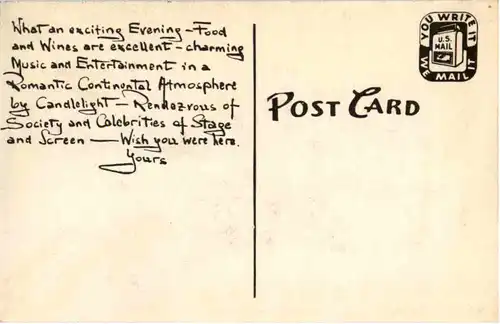 What an exciting Evening – Food
and Wines are excellent – charming
Music and Entertainment in a
Romantic Continental Atmosphere
by Candlelight – Rendezvous of
Society and Celebrities of Stage
and Screen — Wish you were here.
Yours
POST CARD
YOU WRITE IT
U.S.
MAIL
WE MAIL IT